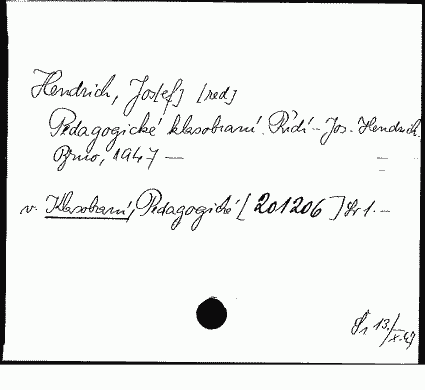 Hendrich, Jos[ef] [red]
Pedagogické klasobraní. Řídí - Jos. Hendrich.
Brno, 1947 —
v. Klasobraní, Pedagogické [201206] Sr 1. —
Sr 13/X.47